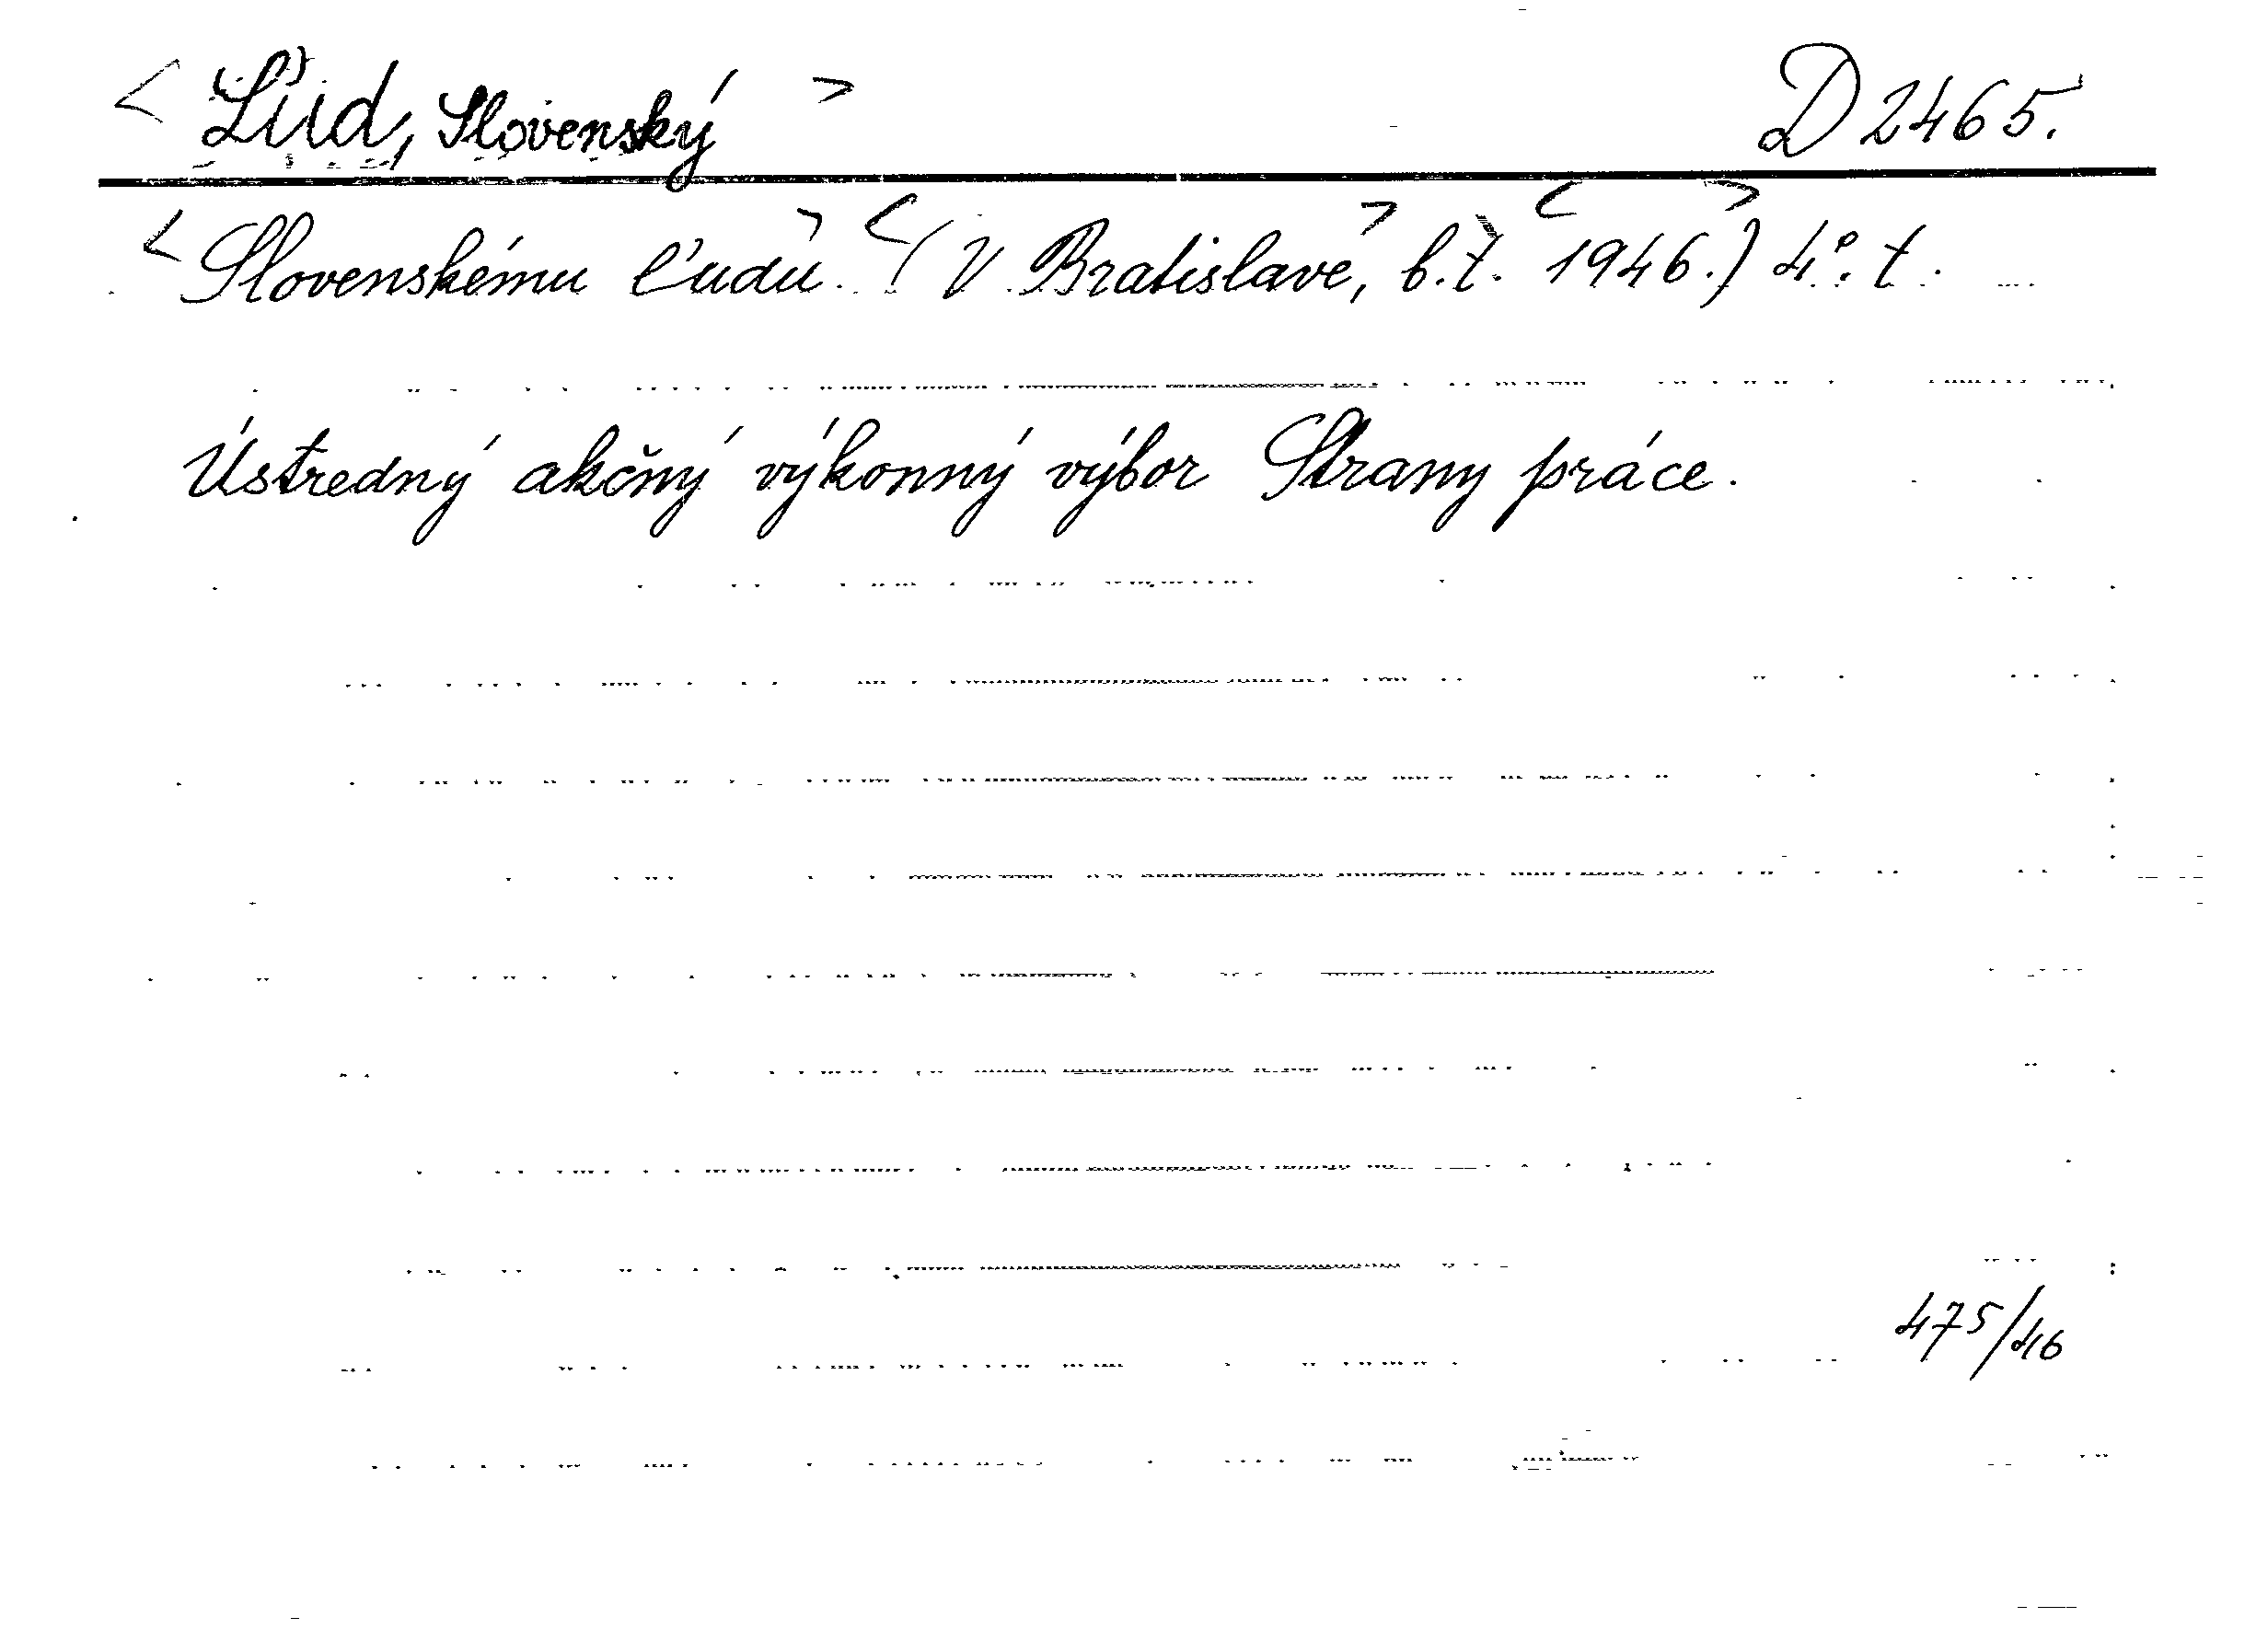 < Ľud, Slovenský > D 2465.
< Slovenskému ľudu. > < (V Bratislave, > b. t. < 1946. > ) 4°. t.
Ústredný akčný výkonný výbor Strany práce.
475/46